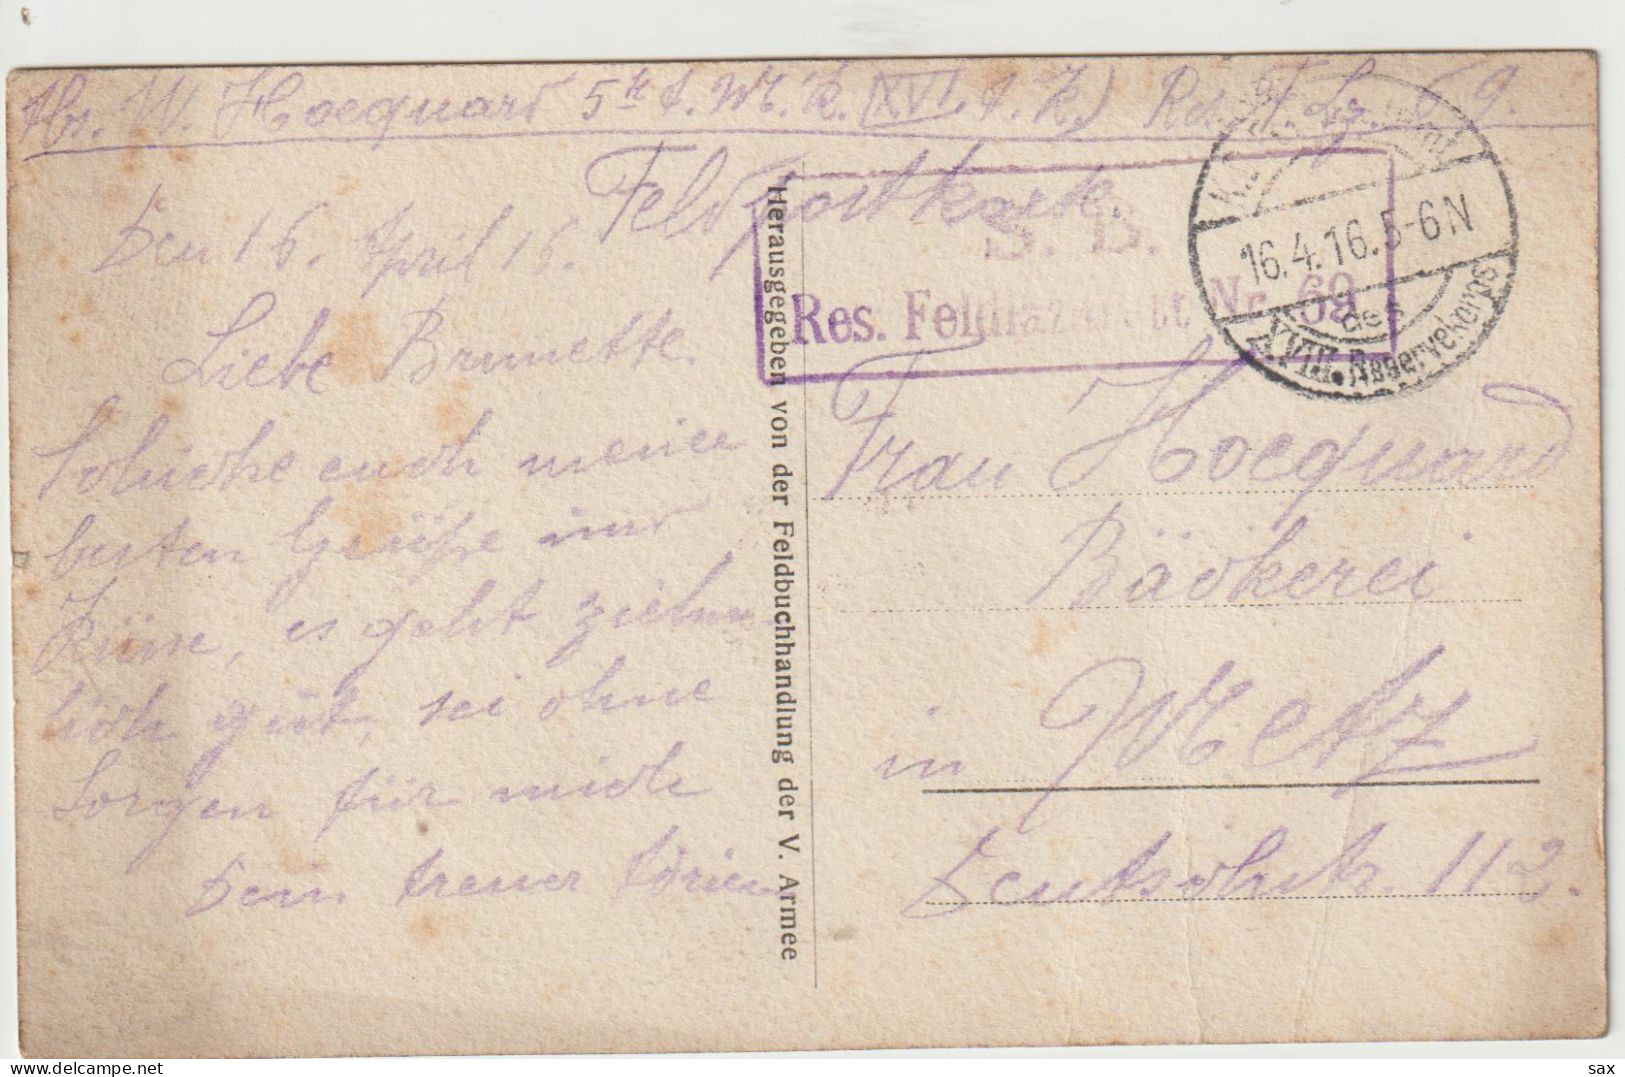 Abs. W. Hocquard 5te A. M. K. (XVI. A. K.) Res. F. Lz. 69.
Feldpostkarte.
S. B.
Res. Feldlazarett Nr. 69
16.4.16.5-6N
des
XVIII. Reservekorps
Den 16. April 16.
Liebe Brunette.
Schicke euch meine
besten Grüße und
Küsse, es geht ziem-
lich gut, sei ohne
Sorgen für mich
Dein treuer
Herausgegeben von der Feldbuchhandlung der V. Armee
Frau Hocquard
Bäckerei
in Metz
Deutschstr. 112.
sax